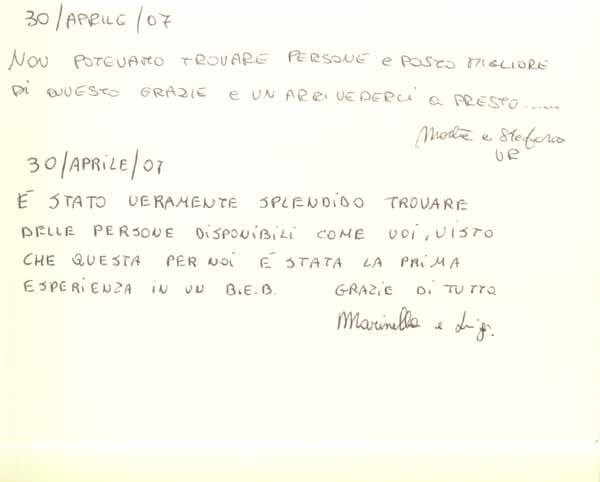 30/APRILE/07
NON POTEVAMO TROVARE PERSONE e POSTO MIGLIORE
DI QUESTO GRAZIE e UN ARRIVEDERCI a PRESTO......
e Stefano
VR
30/APRILE/07
É STATO VERAMENTE SPLENDIDO TROVARE
DELLE PERSONE DISPONIBILI COME VOI, VISTO
CHE QUESTA PER NOI É STATA LA PRIMA
ESPERIENZA IN UN B.E.B. GRAZIE DI TUTTO
Marinella e Luigi.